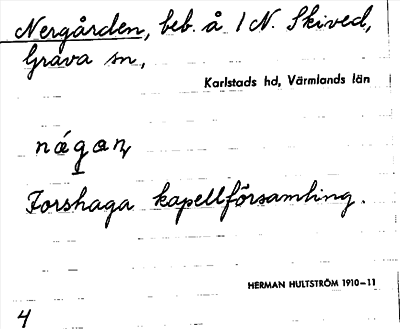 Nergården, beb. å 1 N. Skived,
Grava sn,
Karlstads hd, Värmlands län
Forshaga kapellförsamling.
HERMAN HULTSTRÖM 1910–11
4